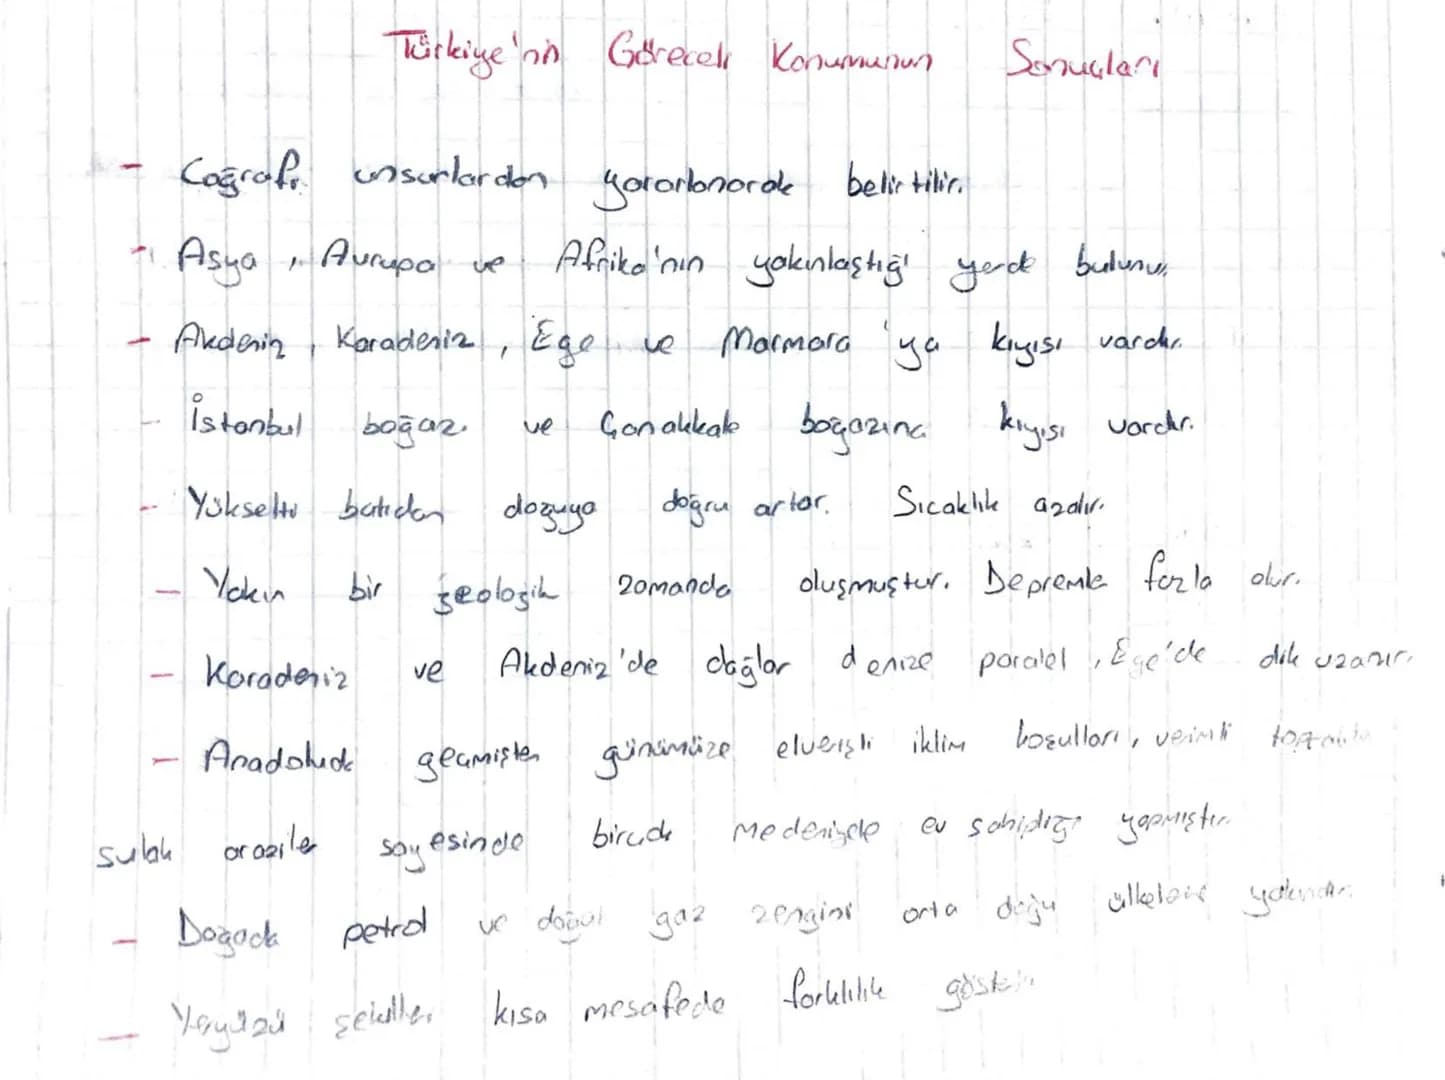 Türkiye'nin Göreceli Konumunun Sonuçları
- Coğrafi unsurlardan yararlanarak belirtilir.
- Asya, Avrupa ve Afrika'nın yakınlaştığı yerde bulunur.
- Akdeniz, Karadeniz, Ege ve Marmara'ya kıyısı vardır.
- İstanbul boğazı ve Çanakkale boğazına kıyısı vardır.
- Yükselti batıdan doğuya doğru artar. Sıcaklık azalır.
- Yakın bir jeolojik zamanda oluşmuştur. Depremle fazla olur.
- Karadeniz ve Akdeniz'de dağlar denize paralel, Ege'de dik uzanır.
- Anadoluda geçmişten günümüze elverişli iklim koşulları, verimli
sulak araziler sayesinde birçok medeniyete ev sahipliği yapmıştır.
- Doğoda petrol ve doğal gaz zengini orta doğu ülkelere yakındır.
- Yeryüzü şekiller kısa mesafede farklılık gösterir